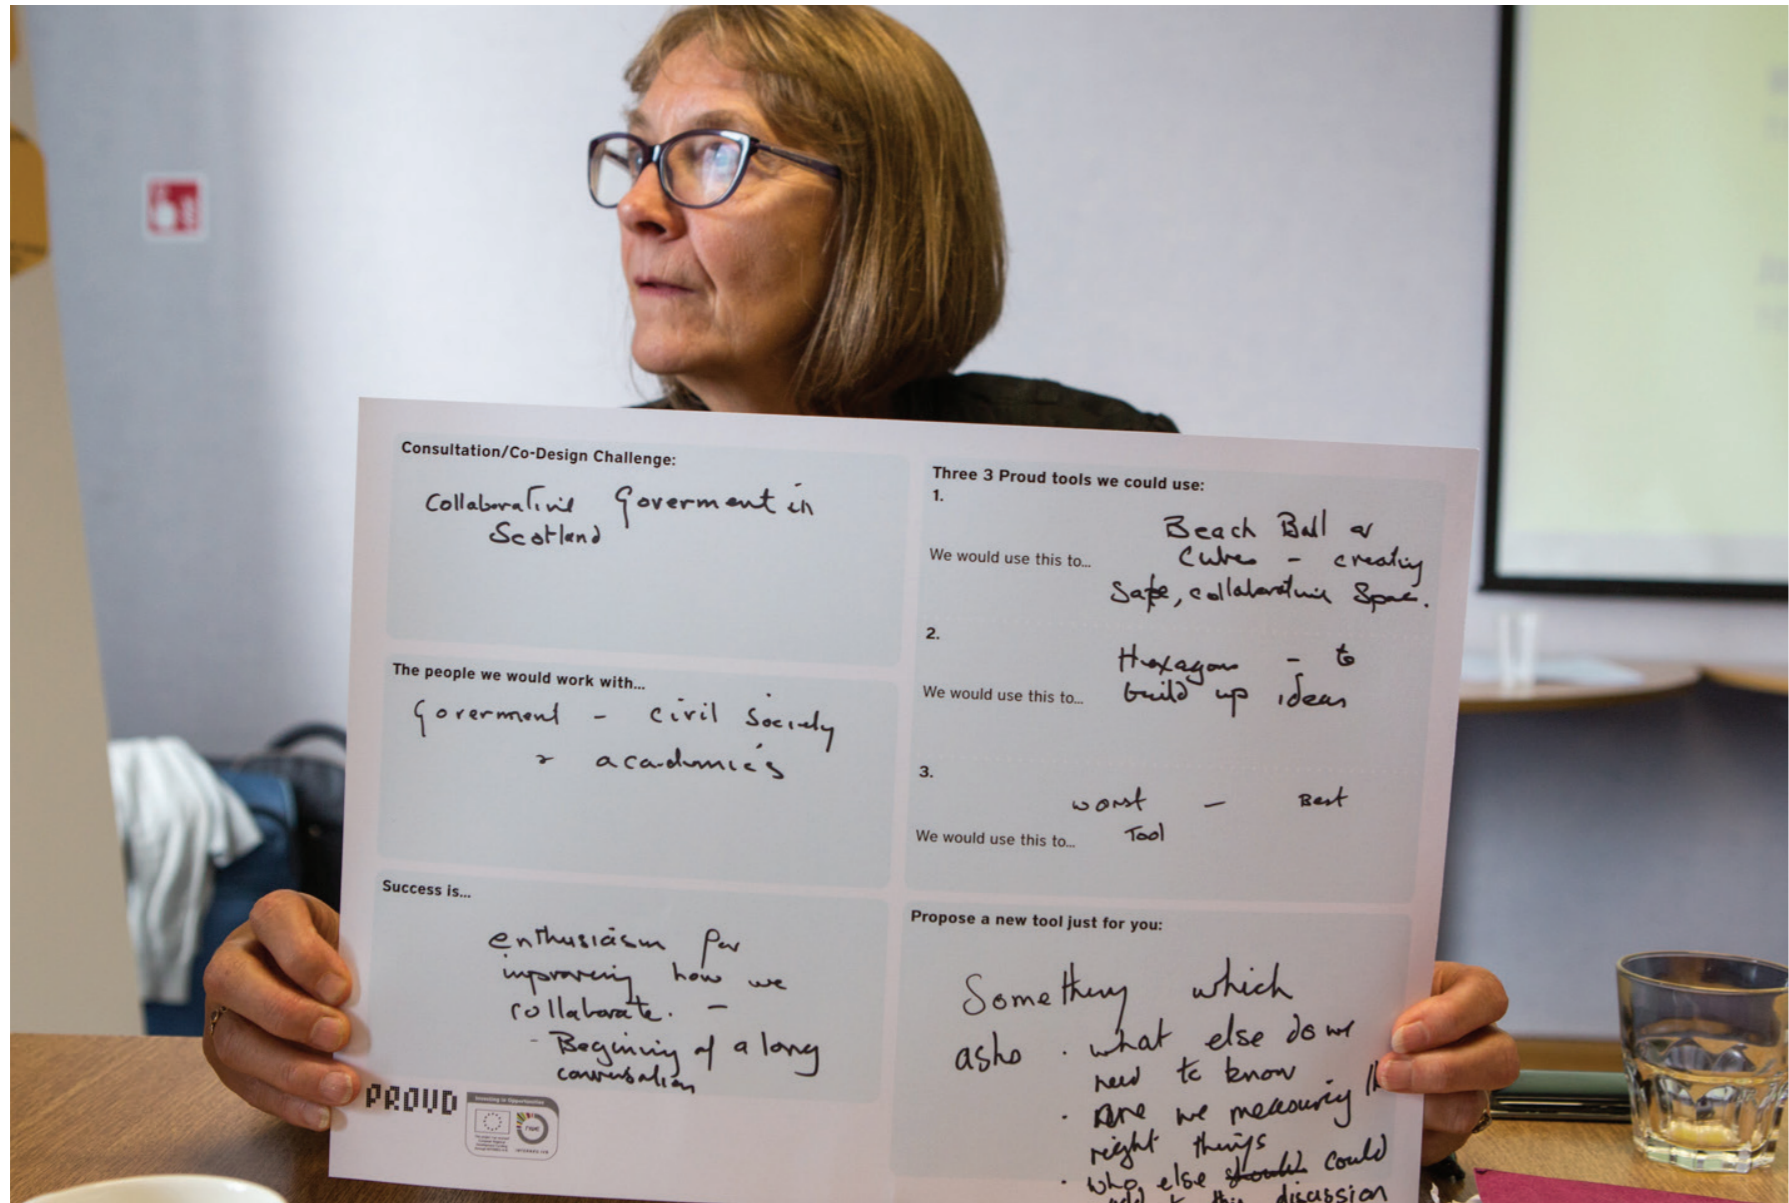 Consultation/Co-Design Challenge:
Collaborative Goverment in
Scotland
The people we would work with...
Goverment - civil Society
& academics
Success is...
enthusiasm for
improving how we
collaborate. -
- Beginning of a long
conversation
PROUD
Investing in Opportunities
INTERREG IVB
Three 3 Proud tools we could use:
1.
Beach Ball or
We would use this to... Cubes - creating
Safe, collaborative Space.
2.
Hexagons - to
We would use this to... build up ideas
3.
worst - Best
We would use this to... Tool
Propose a new tool just for you:
Something which
asks · what else do we
need to know
· Are we measuring
right things
· who else should could
add to this discussion